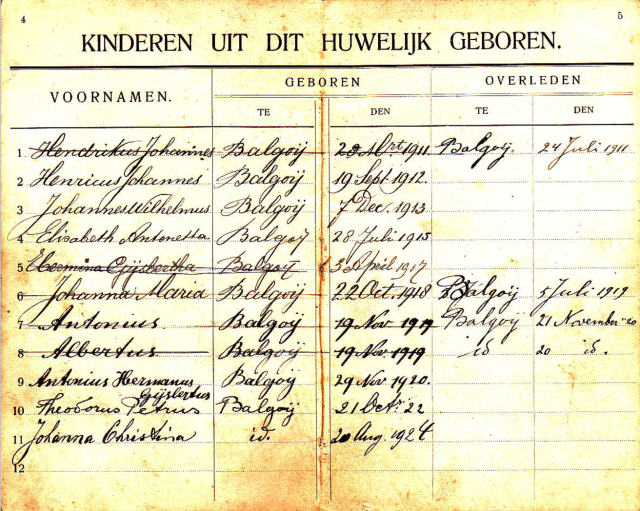 4
5
KINDEREN UIT DIT HUWELIJK GEBOREN.
VOORNAMEN. GEBOREN OVERLEDEN
TE DEN TE DEN
1 Hendrikus Johannes Balgoij 28 Mrt 1911 Balgoij. 24 Juli 1911
2 Henricus Johannes Balgoij 19 Sept 1912.
3 Johannes Wilhelmus Balgoij 7 Dec. 1913
4 Elisabeth Antonetta Balgoij 28 Juli 1915
5 Hermina Gijsbertha Balgoij 3 April 1917
6 Johanna Maria Balgoij 22 Oct. 1918 Balgoij 5 Juli 1919
7 Antonius Balgoij 19 Nov 1919 Balgoij 21 November 20
8 Albertus Balgoij 19 Nov. 1919 id 20 id.
9 Antonius Hermanus Balgoij 29 Nov 1920.
Gijsbertus
10 Theodorus Petrus Balgoij 21 Oct. 22
11 Johanna Christina id. 20 Aug. 1924
12